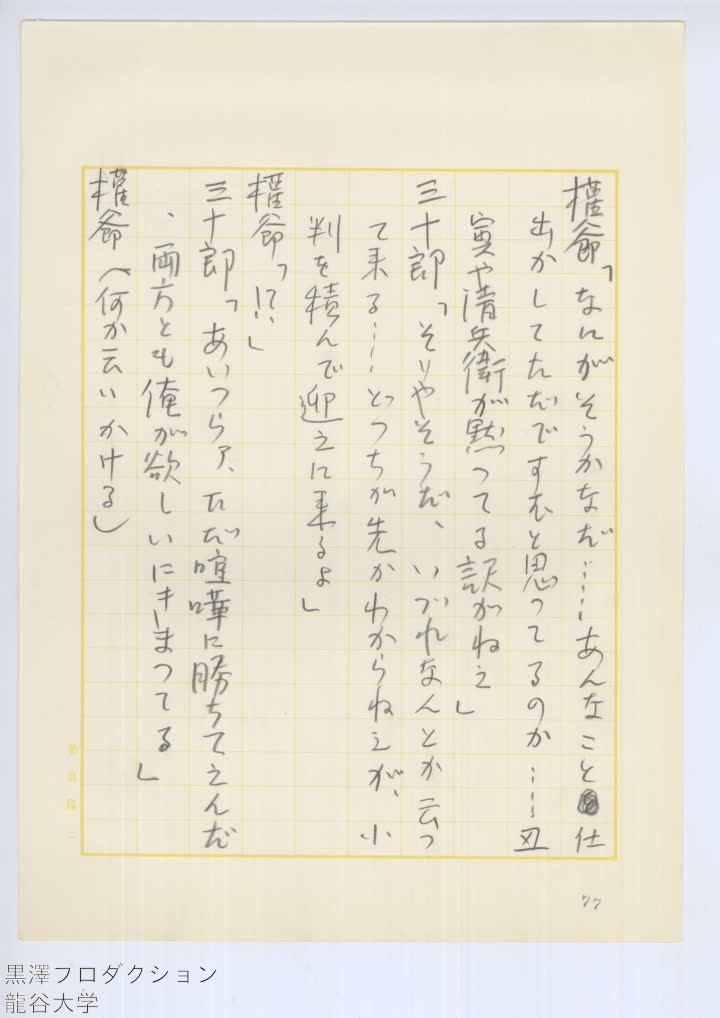 権爺「なにがそうかなだ……あんなこと仕
出かしてただですむと思ってるのか……丑
寅や清兵衛が黙つてる訳がねえ」
三十郎「そりやそうだ、いづれなんとか云つ
て来る……どつちが先かわからねえが、小
判を積んで迎えに来るよ」
権爺「!?」
三十郎「あいつらァ、ただ喧嘩に勝ちてえんだ
、両方とも俺が欲しいにきまつてる」
権爺(何か云いかける)
77
黒澤プロダクション
龍谷大学